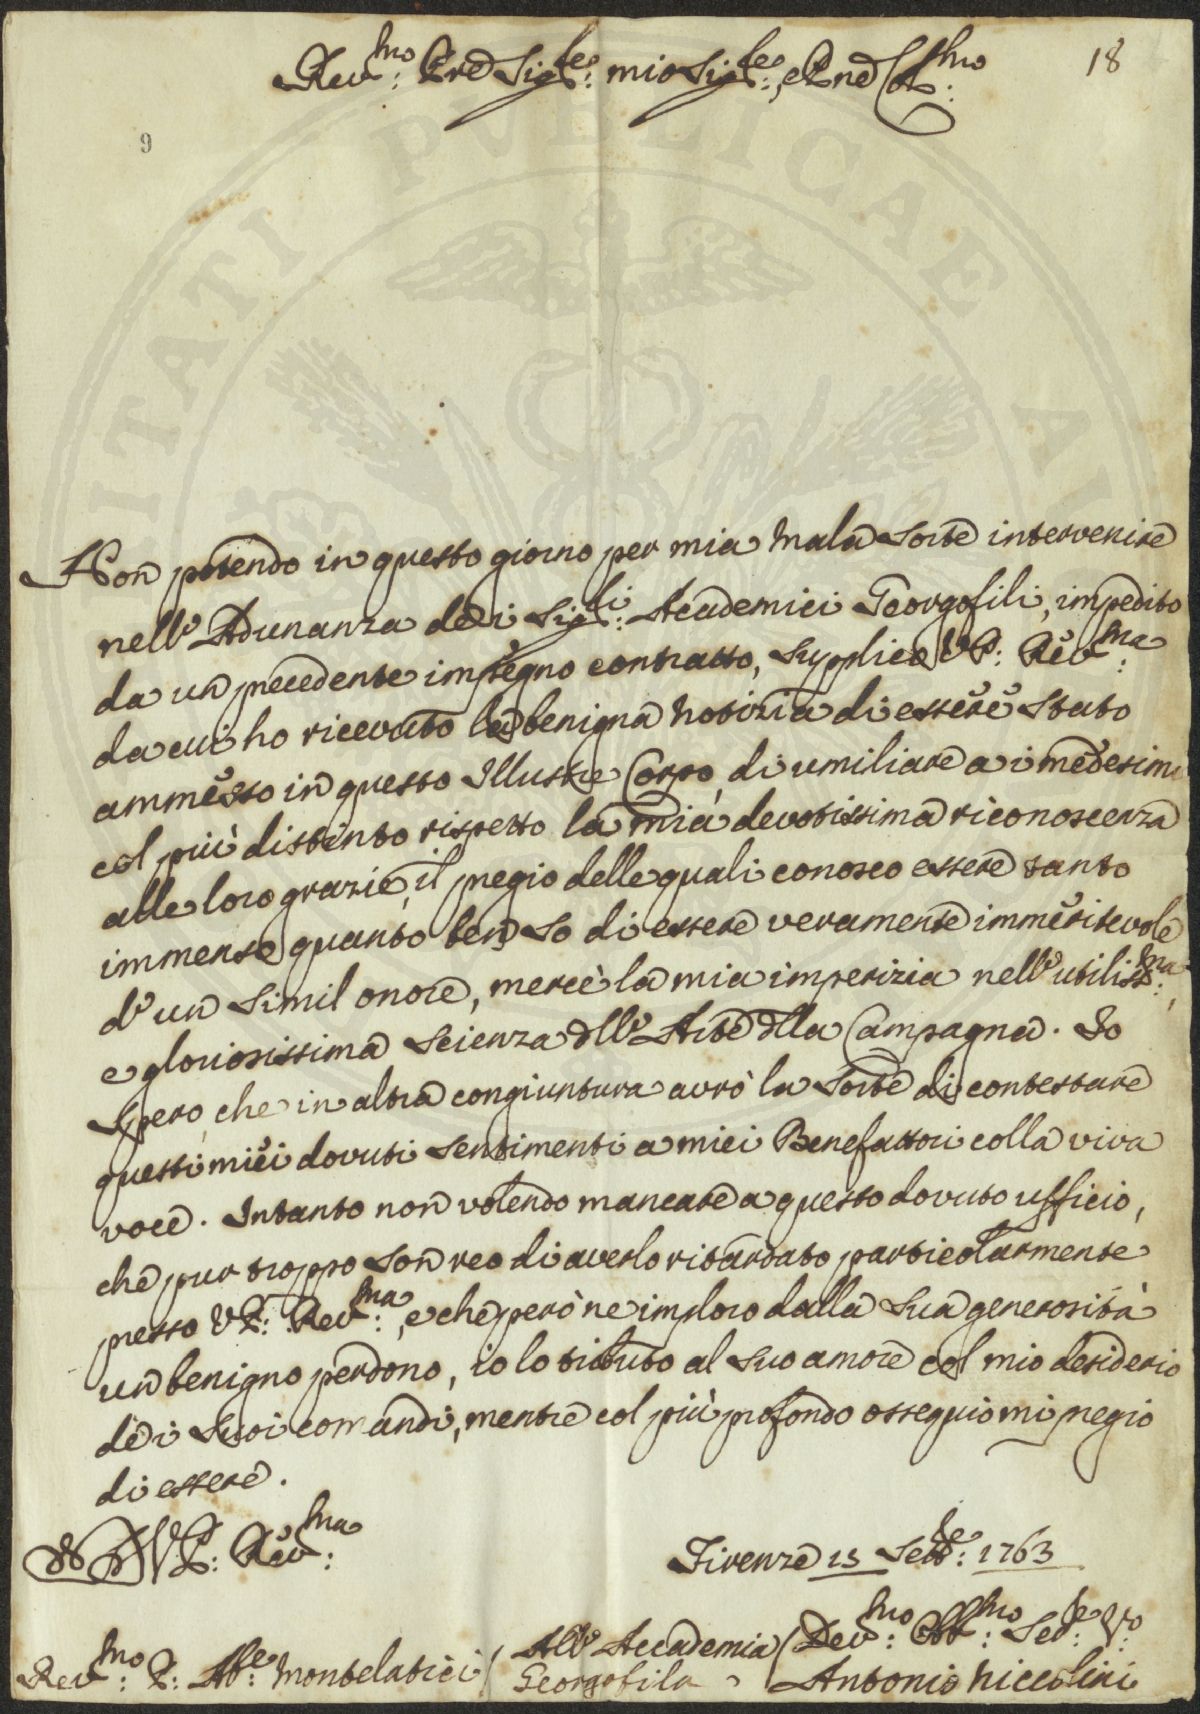 18
Rev:mo Pre Sig:re mio Sig:re, e Pne Col:mo
9
PUBLICAE
Non potendo in questo giorno per mia mala sorte intervenire
nell'Adunanza dei Sig:ri Academici Georgofili, impedito
da un precedente impegno contratto, supplico V P: Rev:ma
da cui ho ricevuto la benigna notizia di essere stato
ammesso in questo Illustre Corpo, di umiliare a i medesimi
col più distinto rispetto la mia devotissima riconoscenza
alle loro grazie, il pregio delle quali conosco essere tanto
immenso quanto ben so di essere veramente immeritevole
d'un simil onore, mercè la mia imperizia nell'utiliss:ma,
e gloriosissima scienza dll'Arte dlla Campagna. Io
spero che in altra congiuntura avrò la sorte di contestare
questi miei dovuti sentimenti a miei Benefattori colla viva
voce. Intanto non volendo mancare a questo dovuto ufficio,
che pur troppo son reo di averlo ritardato particolarmente
presso V P: Rev:ma, e che però ne imploro dalla sua generosità
un benigno perdono, io lo tributo al suo amore col mio desiderio
dei suoi comandi, mentre col più profondo ossequio mi pregio
di essere.
V P: Rev:ma
Firenze 15 Sett:re 1763
Rev:mo P: Ab:e Montelatici
All'Accademia
Georgofila
Dev:mo Obb:mo Ser:re V:ro
Antonio Niccolini